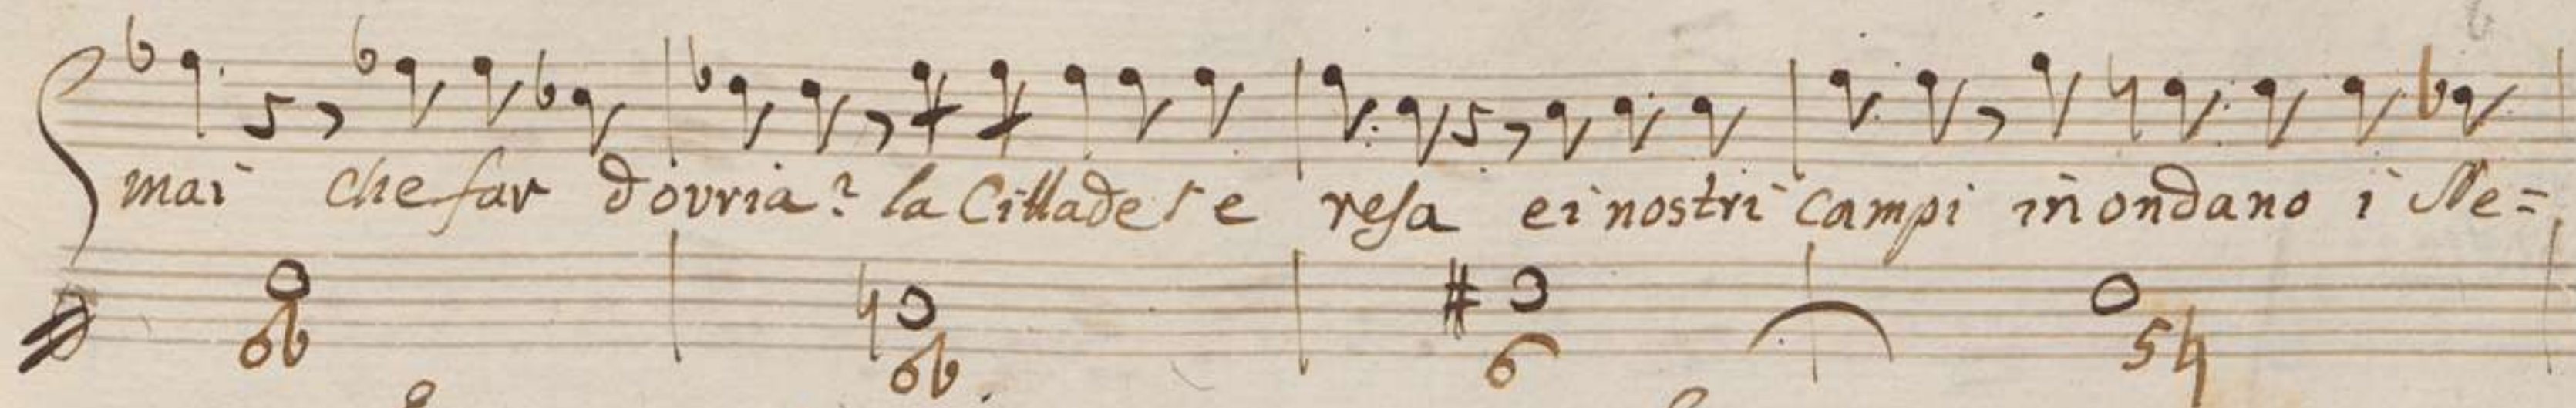 mai che far dovria? la Cittade s'e resa e i nostri campi inondano i Ne=
6b 6b 6 5 4